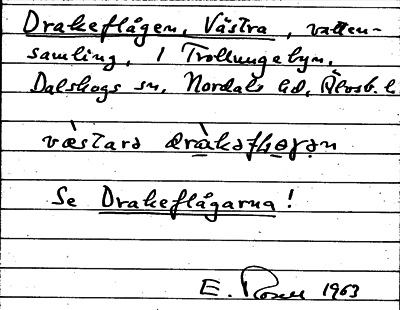 Drakeflågen, Västra, vatten-
samling, i Trollungebyn,
Dalskogs sn, Nordals hd, Älvsb. l.
Se Drakeflågarna!
E. Rosell 1963